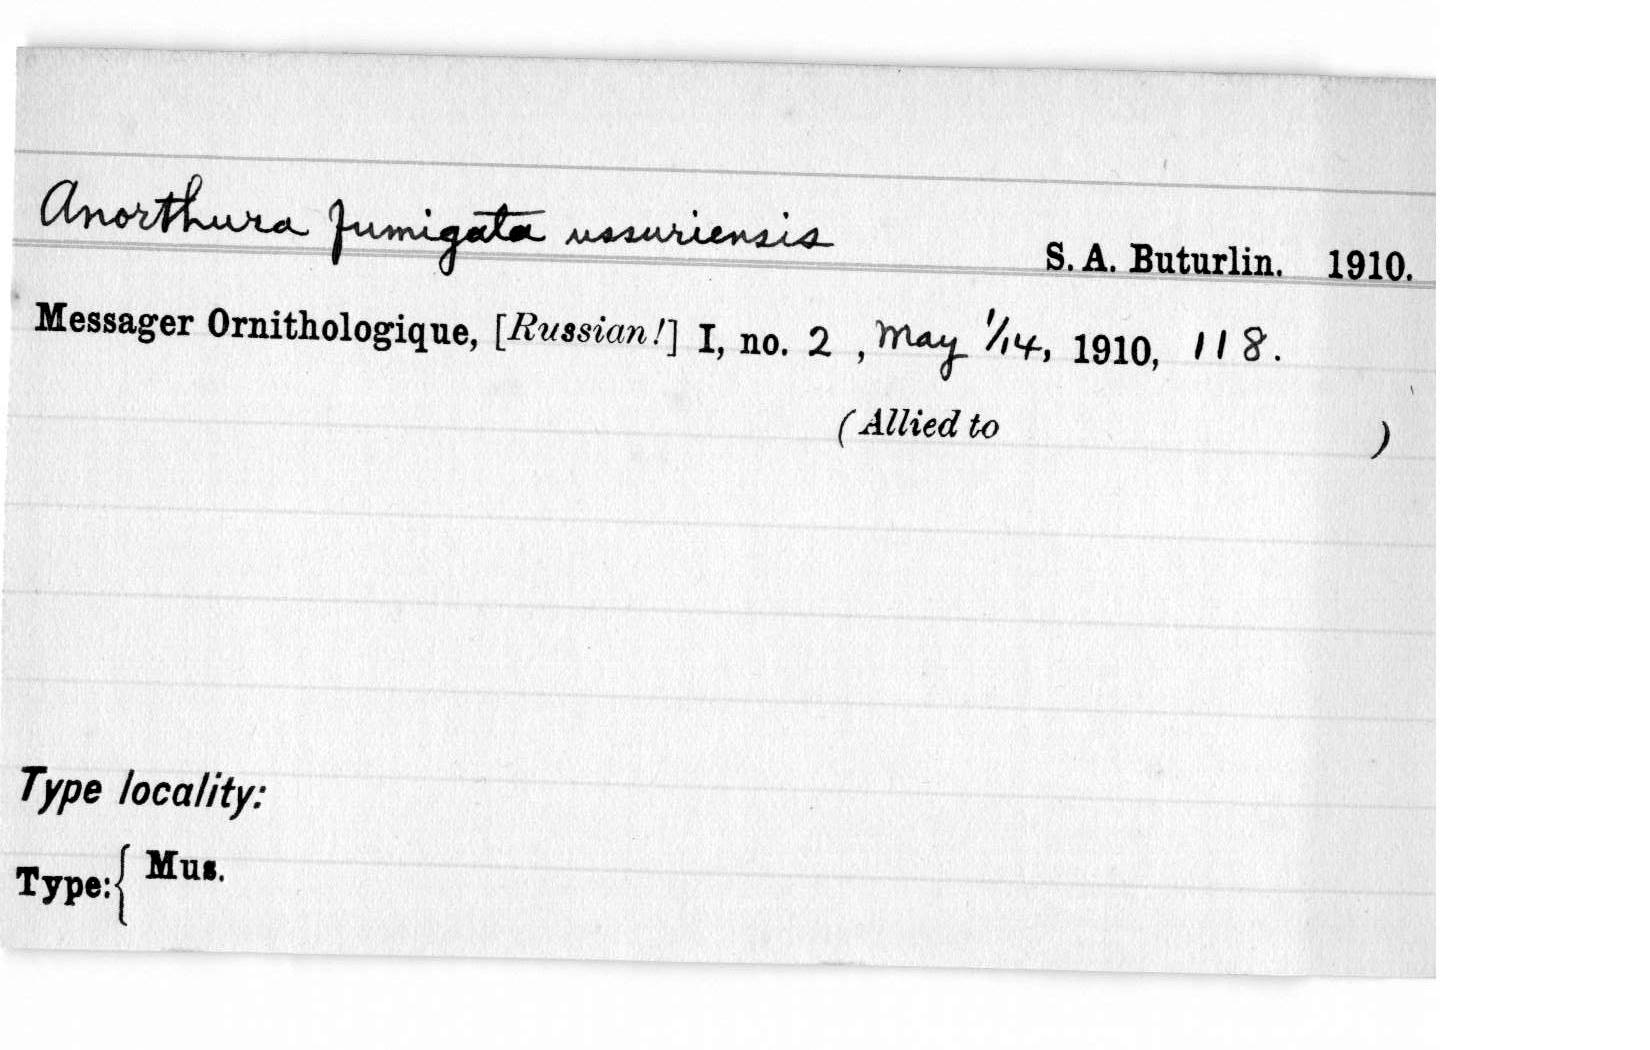 Anorthura fumigata ussuriensis S. A. Buturlin. 1910.
Messager Ornithologique, [Russian!] I, no. 2 , May 1/14, 1910, 118.
(Allied to )
Type locality:
Type: { Mus.